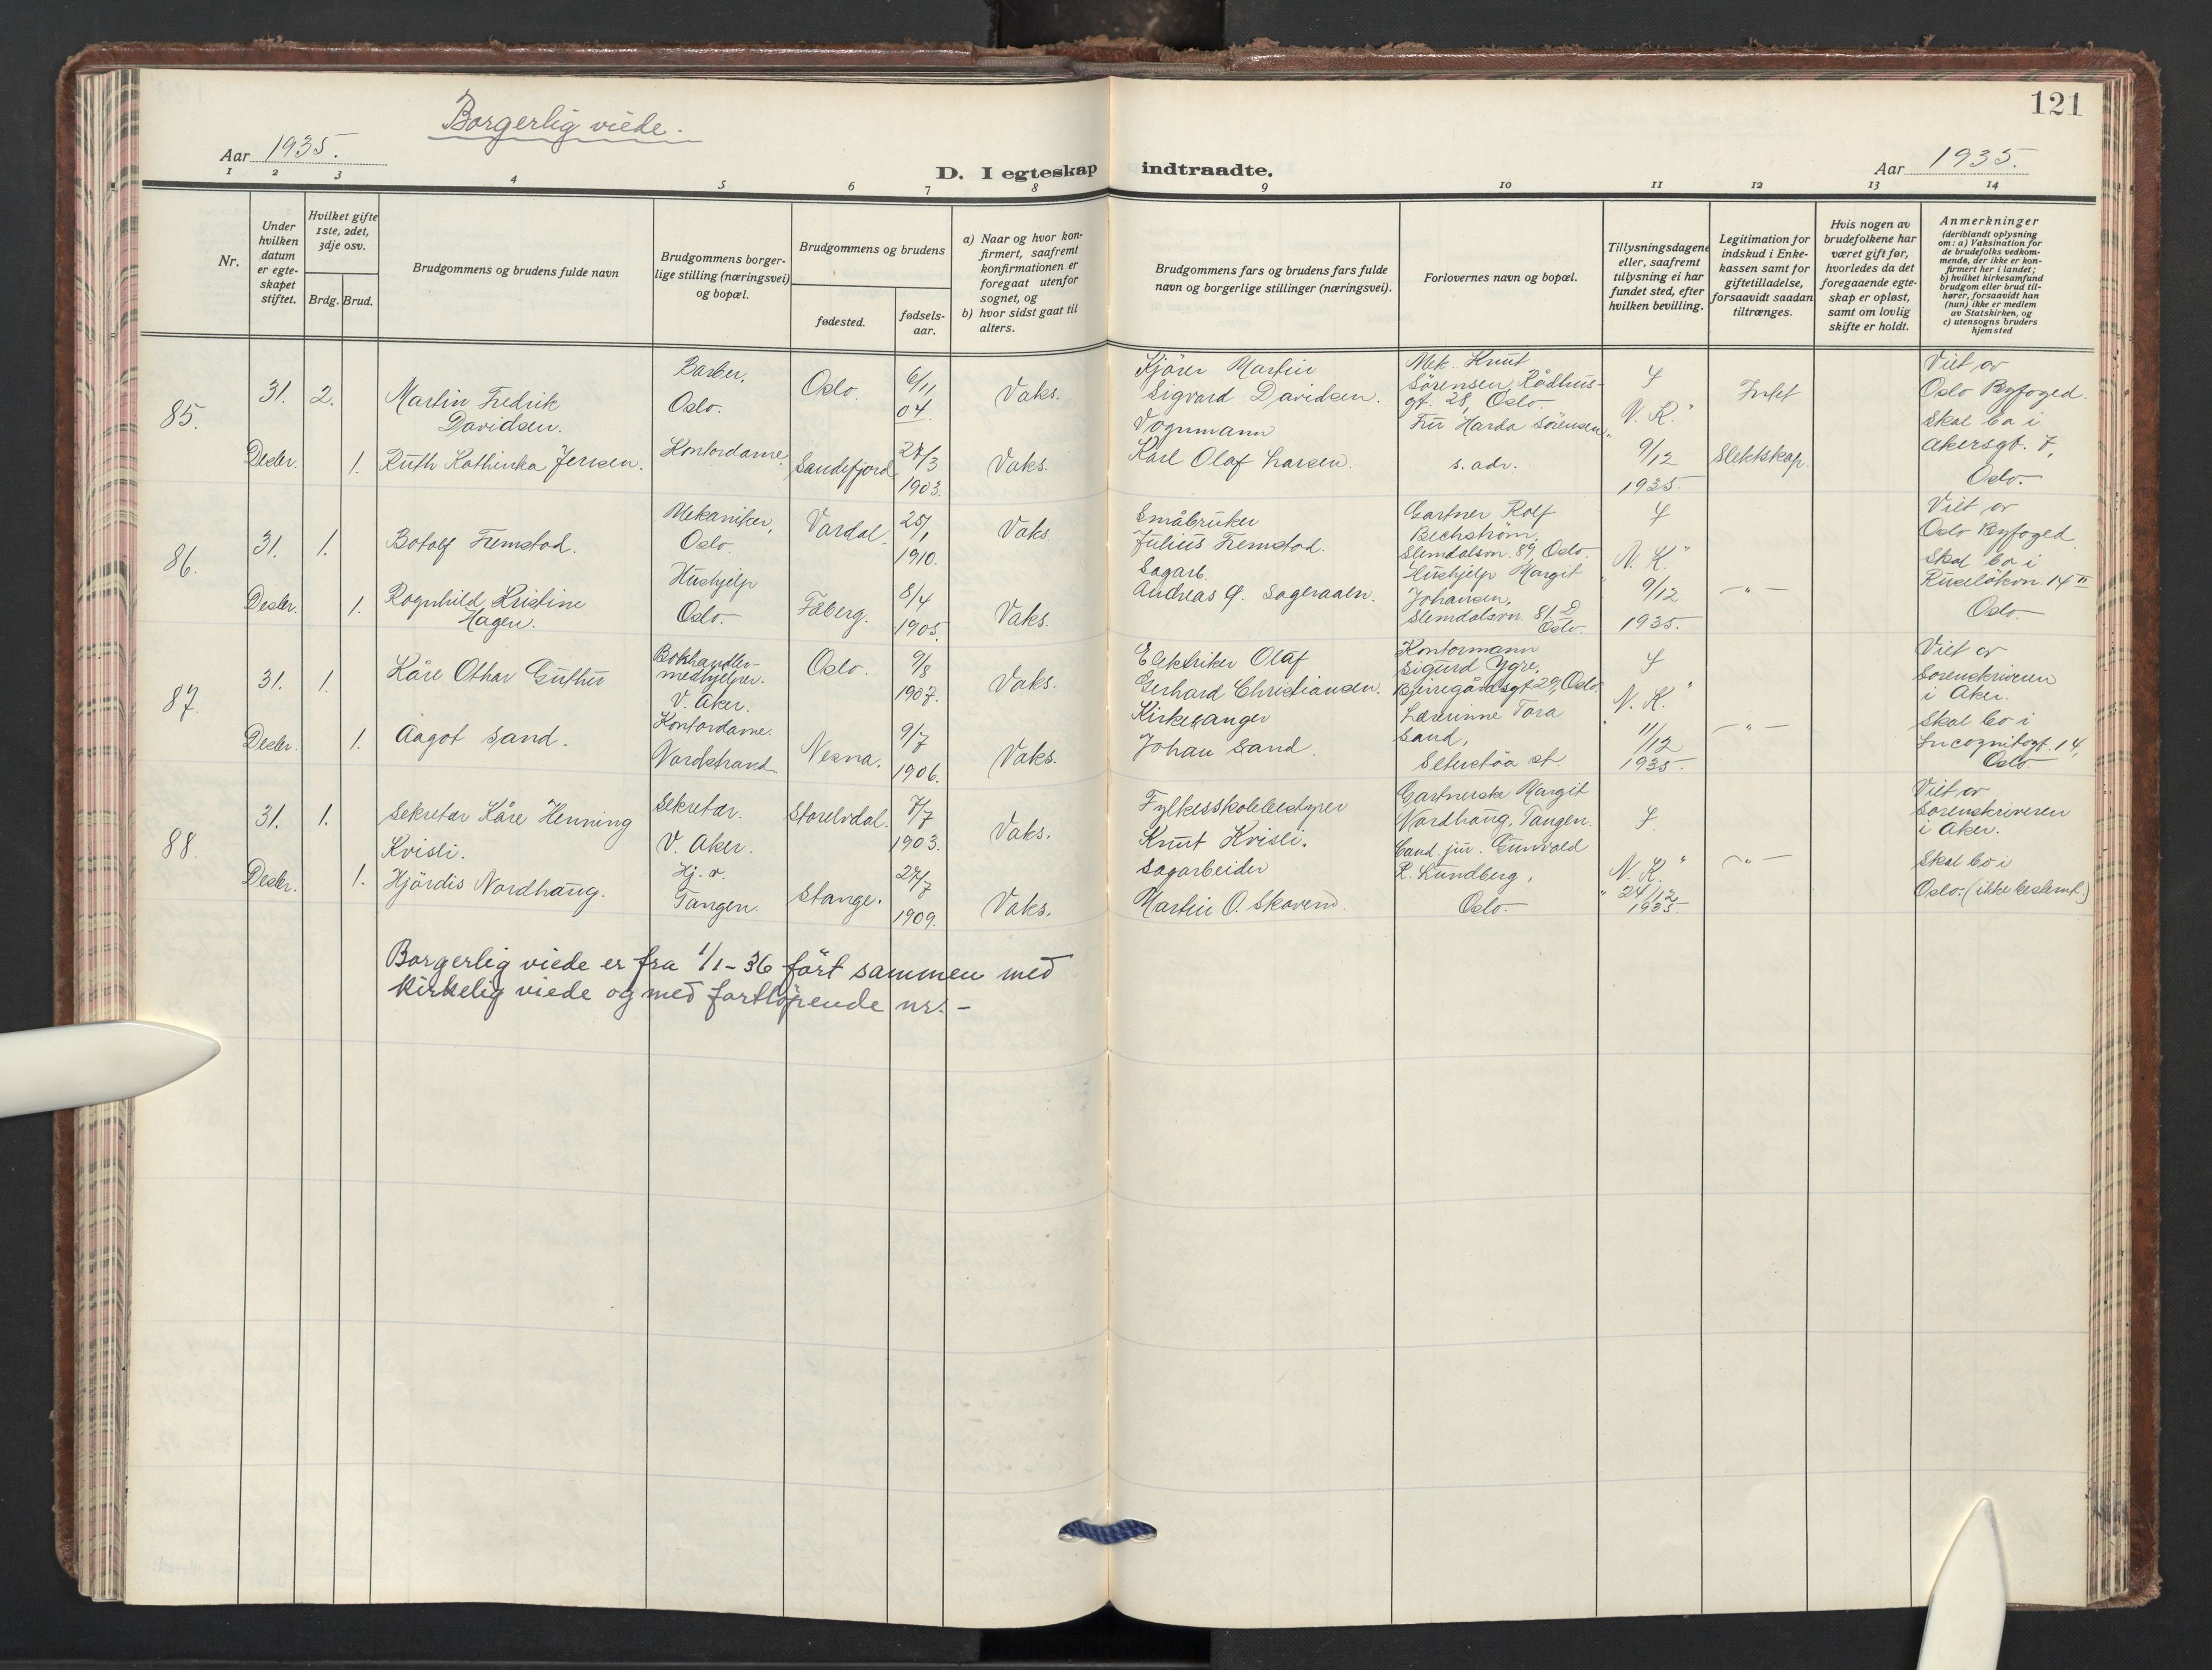 121
Borgerlig viede.
Aar 1935.
D. I egteskap indtraadte.
Aar 1935.
1 2 3 4 5 6 7 8 9 10 11 12 13 14
Nr.
Under hvilken datum er egteskapet stiftet.
Hvilket gifte 1ste, 2det, 3dje osv.
Brdg. Brud.
Brudgommens og brudens fulde navn
Brudgommens borgerlige stilling (næringsvei) og bopæl.
Brudgommens og brudens
fødested.
fødselsaar.
a) Naar og hvor konfirmert, saafremt konfirmationen er foregaat utenfor sognet, og
b) hvor sidst gaat til alters.
Brudgommens fars og brudens fars fulde navn og borgerlige stillinger (næringsvei).
Forlovernes navn og bopæl.
Tillysningsdagene eller, saafremt tillysning ei har fundet sted, efter hvilken bevilling.
Legitimation for indskud i Enkekassen samt for giftetilladelse, forsaavidt saadan tiltrænges.
Hvis nogen av brudefolkene har været gift før, hvorledes da det foregaaende egteskap er opløst, samt om lovlig skifte er holdt.
Anmerkninger
(deriblandt oplysning om: a) Vaksination for de brudefolks vedkommende, der ikke er konfirmert her i landet; b) hvilket kirkesamfund brudgom eller brud tilhører, forsaavidt han (hun) ikke er medlem av Statskirken, og c) utensogns bruders hjemsted
85.
31. 2. Martin Fredrik Davidsen.
Barber, Oslo.
Oslo. 6/11 04. Vaks.
Kjörer Martin Sigvard Davidsen.
Mek. Knut Sörensen, Rådhusgt. 28, Oslo.
Desbr. 1. Ruth Kathinka Jensen.
Kontordame
Sandefjord 27/3 1903. Vaks.
Vognmann Karl Olaf Larsen.
Fru Harda Sörensen, s. adr.
N. K. 9/12 1935.
Intet Slektskap.
Viet av Oslo Byfoged.
Skal bo i Akersgt. 7, Oslo.
86.
31. 1. Botolf Fremstad.
Mekaniker, Oslo.
Vardal. 25/1 1910. Vaks.
Småbruker Julius Fremstad.
Gartner Rolf Bechström, Slemdalsvn. 89, Oslo.
Desbr. 1. Ragnhild Kristine Hagen.
Hushjelp Oslo.
Fåberg. 8/4 1905. Vaks.
Sagarb. Andreas
Hushjelp Margit Johansen, Slemdalsvn. 81 D Oslo.
N. K. 9/12 1935.
— " —
Viet av Oslo Byfoged
Skal bo i Ruselökvn. 14 II Oslo.
87.
31. 1. Kåre Othar Guthu
Bokhandlermedhjelper. V. Aker.
Oslo. 9/8 1907. Vaks.
Elektriker Olaf Gerhard Christiansen.
Kontormann Sigurd Ygre, Bjerregårdsgt. 29, Oslo.
Desbr. 1. Aagot Sand.
Kontordame. Nordstrand
Nesna. 9/7 1906. Vaks.
Kirkesanger Johan Sand.
Lærerinne Tora Sand, st.
N. K. 11/12 1935.
— " —
Viet av Sorenskriveren i Aker.
Skal bo i Incognitogt. 14, Oslo
88.
31. 1. Sekretær Kåre Henning Kvisli.
Sekretær. V. Aker.
Storelvdal. 7/7 1903. Vaks.
Fylkesskolebestyrer Knut Kvisli.
Gartnerske Margit Nordhaug, Tangen.
Desbr. 1. Hjördis Nordhaug.
Hj. v. Tangen.
Stange. 27/7 1909. Vaks.
Sagarbeider Martin O.
Cand. jur. Gunvald R. Lundberg, Oslo.
N. K. 24/12 1935
— " —
Viet av Sorenskriveren i Aker.
Skal bo i Oslo. (ikke bestemt)
Borgerlig viede er fra 1/1-36 fört sammen med
kirkelig viede og med fortlöpende nr. -